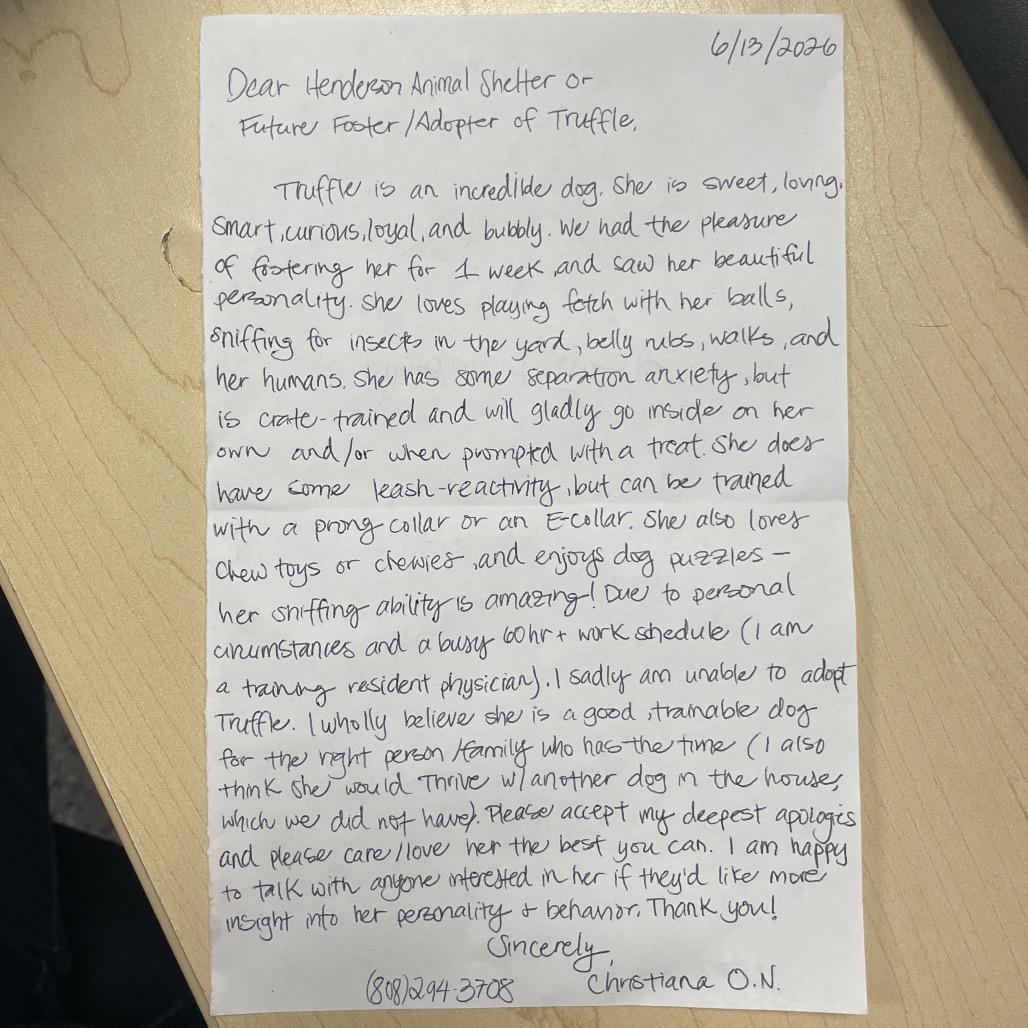 6/13/2026
Dear Henderson Animal Shelter or
Future Foster/Adopter of Truffle,
Truffle is an incredible dog. She is sweet, loving,
smart, curious, loyal, and bubbly. We had the pleasure
of fostering her for 1 week, and saw her beautiful
personality. She loves playing fetch with her balls,
sniffing for insects in the yard, belly rubs, walks, and
her humans. She has some separation anxiety, but
is crate-trained and will gladly go inside on her
own and/or when prompted with a treat. She does
have some leash-reactivity, but can be trained
with a prong collar or an E-collar. She also loves
chew toys or chewies, and enjoys dog puzzles –
her sniffing ability is amazing! Due to personal
circumstances and a busy 60hr+ work schedule (I am
a training resident physician). I sadly am unable to adopt
Truffle. I wholly believe she is a good, trainable dog
for the right person/family who has the time (I also
think she would thrive w/ another dog in the house,
which we did not have). Please accept my deepest apologies
and please care/love her the best you can. I am happy
to talk with anyone interested in her if they'd like more
insight into her personality & behavior. Thank you!
Sincerely,
(808)294-3708 Christiana O.N.